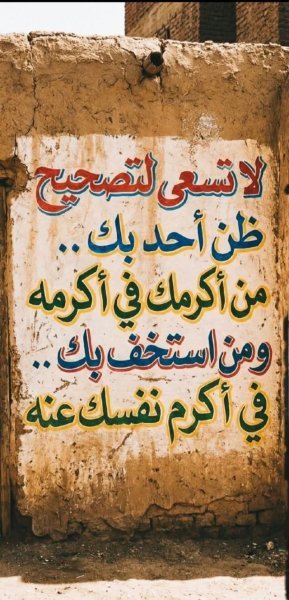 لا تسعى لتصحيح
ظن أحد بك ..
من أكرمك في أكرمه
ومن استخف بك ..
في أكرم نفسك عنه